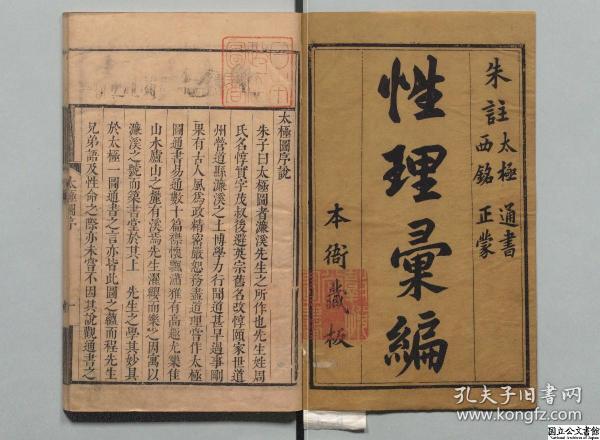 朱註太極 通書
西銘 正蒙
性理彙編
本衙藏板
太極圖序說
朱子曰太極圖者濂溪先生之所作也先生姓周
氏名惇實字茂叔後避英宗舊名改惇頤家世道
州營道縣濂溪之上博學力行聞道甚早遇事剛
果有古人風為政精密嚴恕務盡道理嘗作太極
圖通書易通數十篇襟懷飄灑雅有高趣尤樂佳
山水廬山之麓有溪焉先生濯纓而樂之因寓以
濂溪之號而築書堂於其上 先生之學其妙具
於太極一圖通書之言亦皆此圖之蘊而程先生
兄弟語及性命之際亦未嘗不因其說觀通書之
太極圖序
一
孔夫子旧书网
www.kongfz.com
国立公文書館
National Archives of Japan